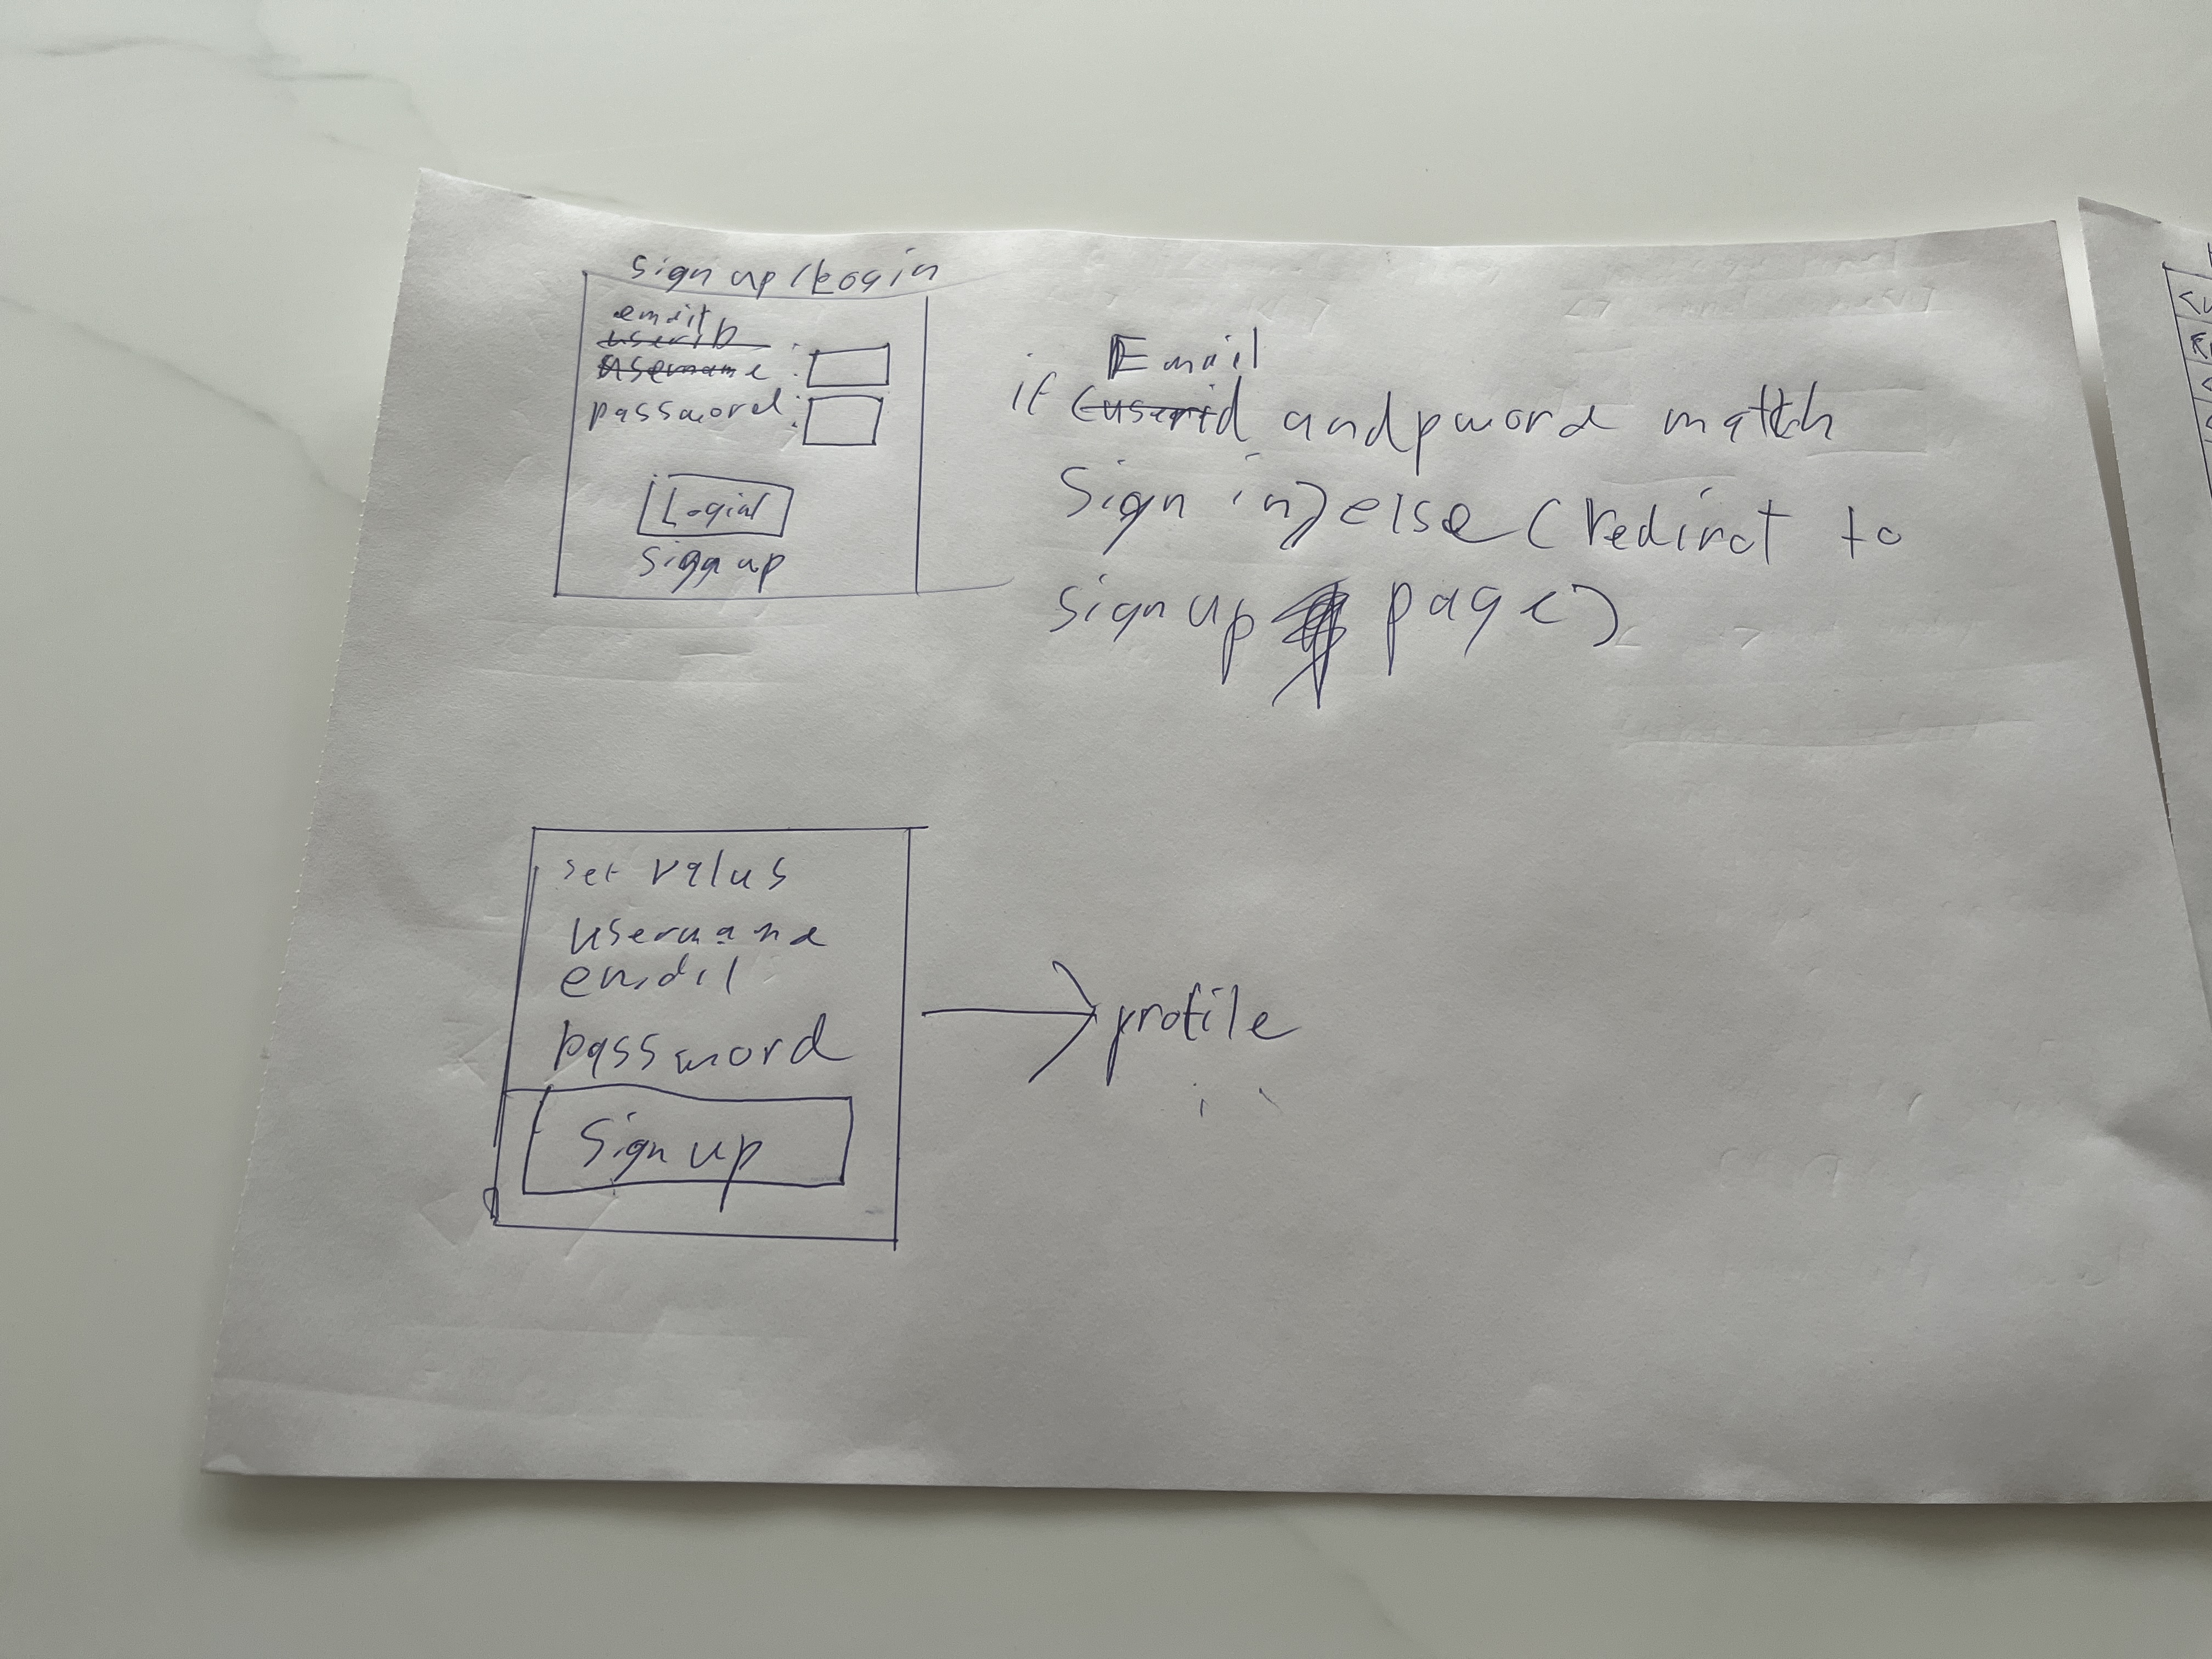 sign up / Login
email
userId
username :
password :
Login
Sign up
Email
if (userid and pword match
Sign in) else (Redirct to
Sign up page)
set values
Username
email
password
Sign up
profile